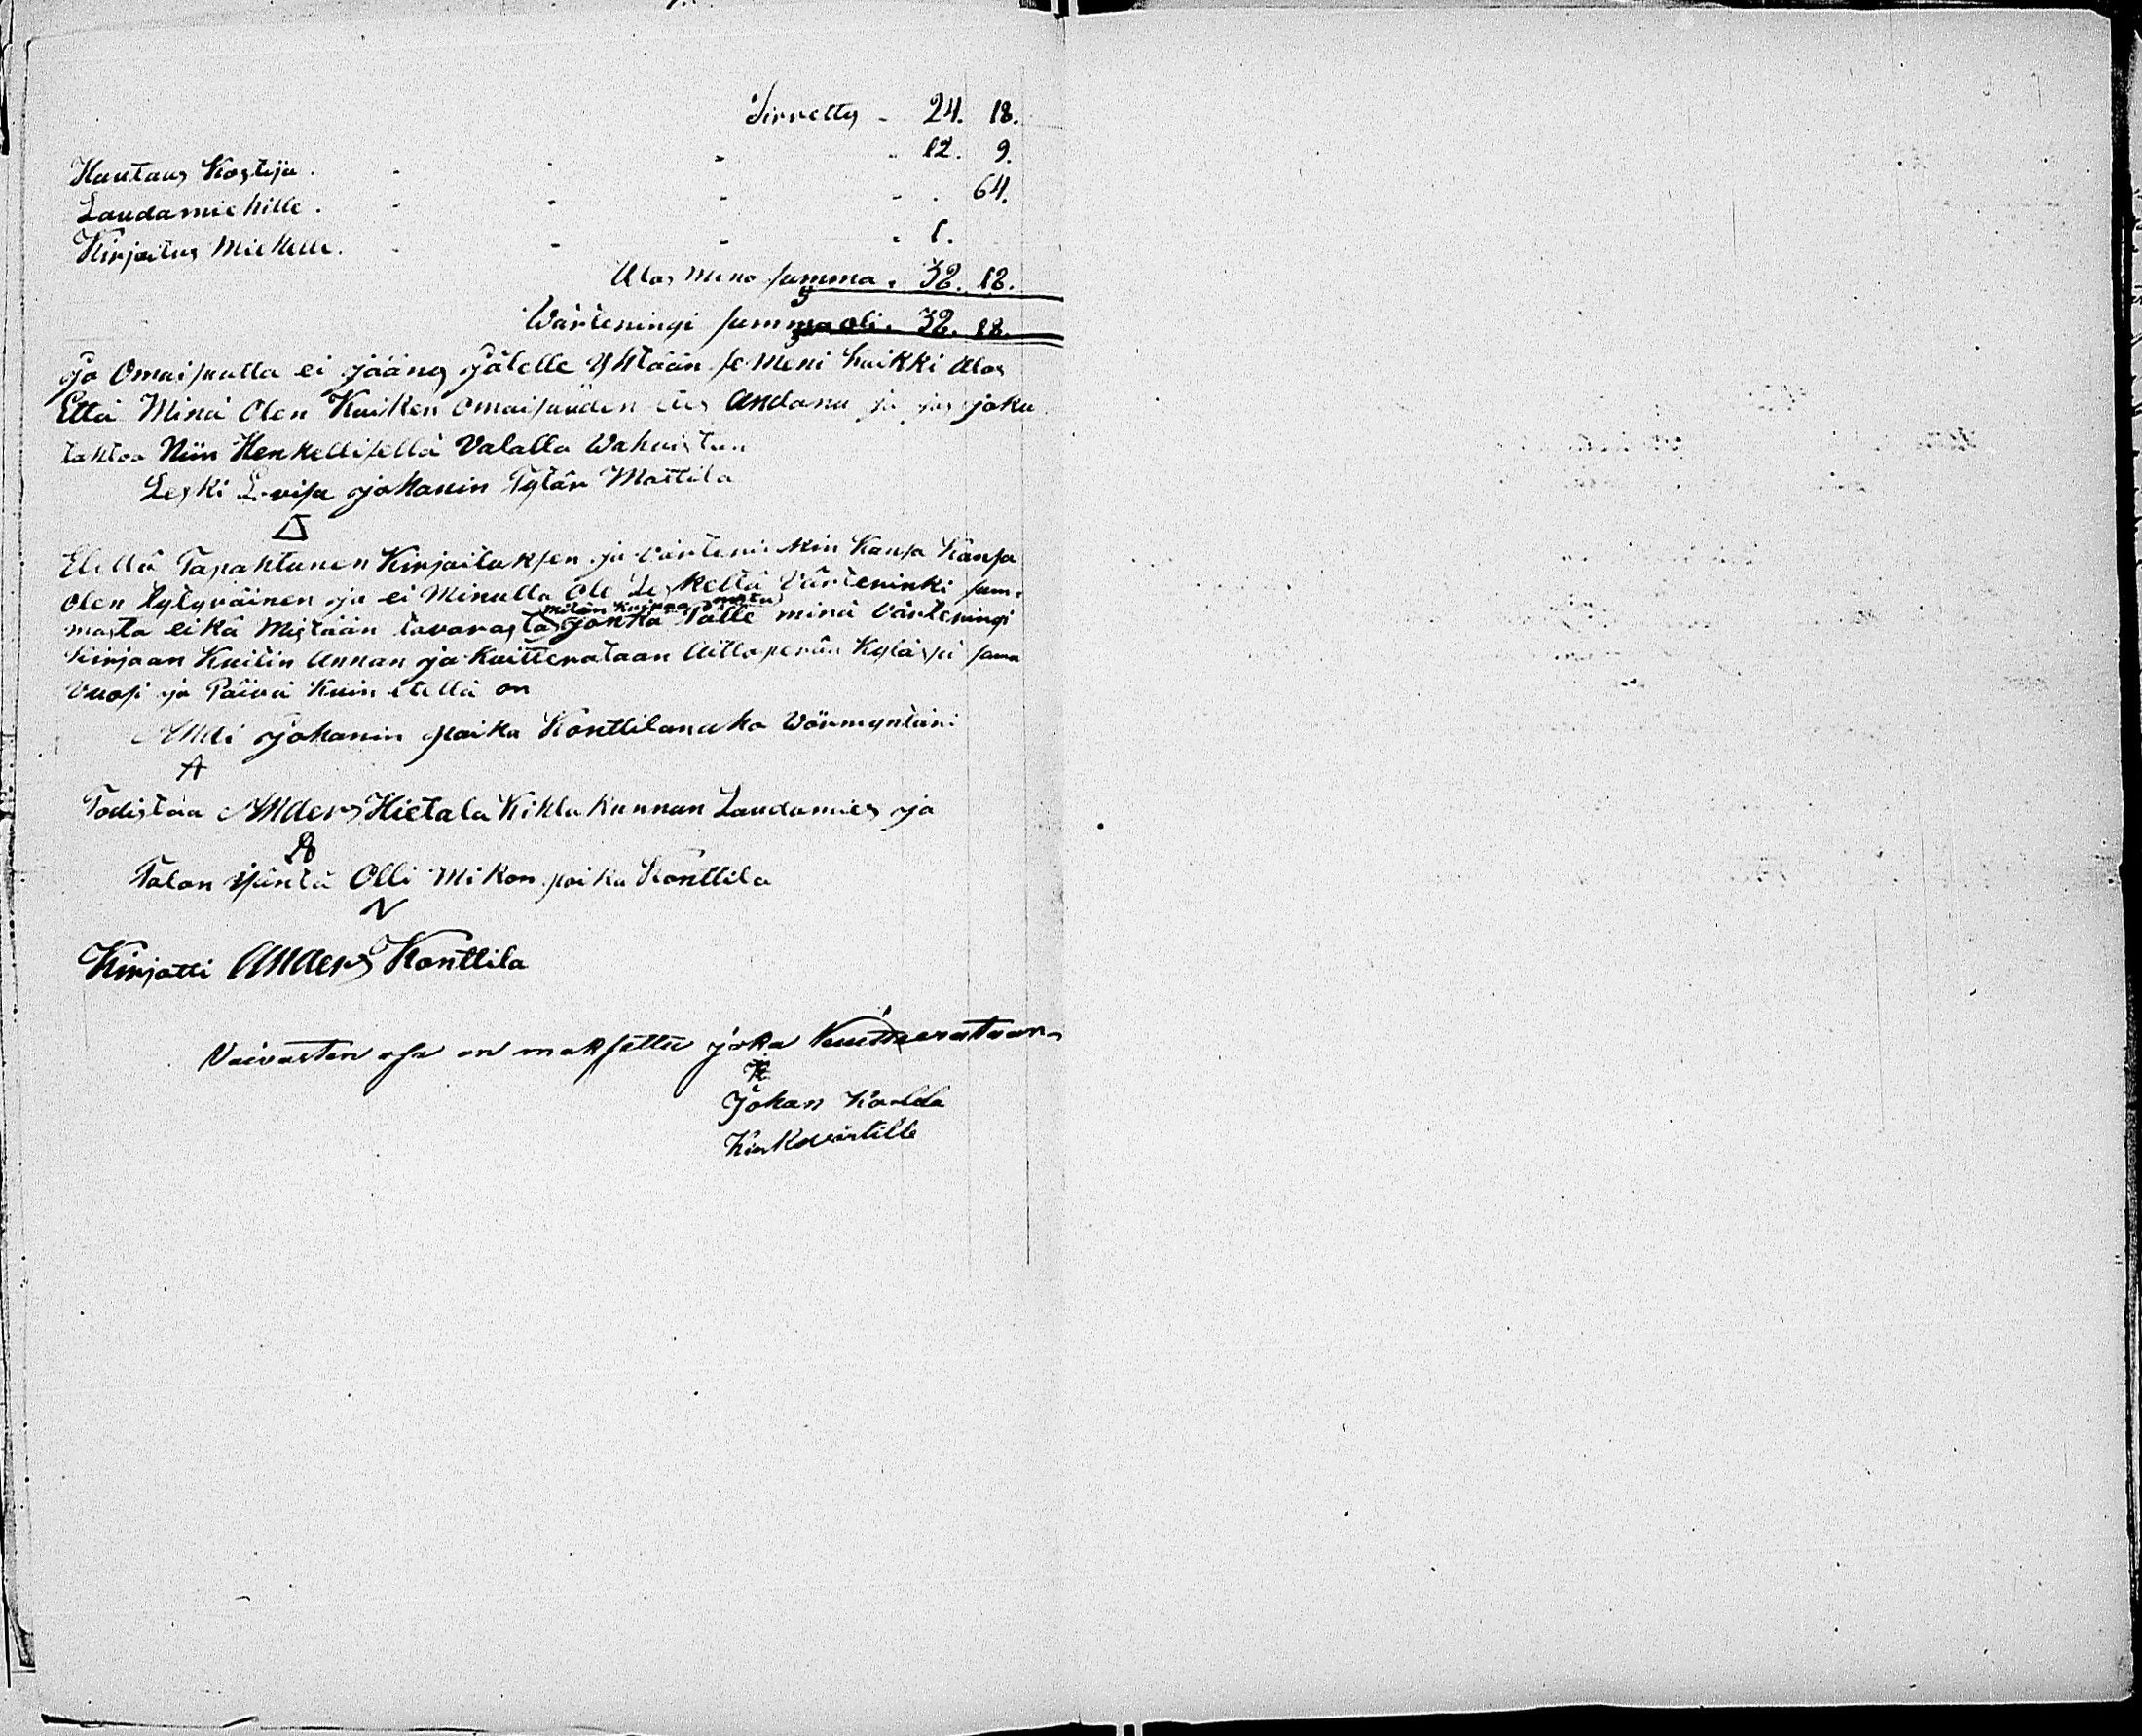 Sirretty - 24. 18.
Hautaus Kostija . - - - - 12. 9.
Laudamiehille . - - - - . 64.
Kirjaitus Miehelle . - - - - 1.
Ulos Meno summa . 38. 18.
Wärteningi summa oli . 38. 18.
ja Omaisutta ei jääny jälelle Yhtään se Meni kaikki Ulos
Että Minä Olen Kaiken Omaisuuden Andanu ja jos joku
tahtoo Niin Henkellisellä Valalla Wahvistan
Leski Lovisa johanin Tytär Mattila
Elellä Tapahtunen Kirjaituksen ja Kansa Kansa
Olen tytyväinen ja ei Minulla Ole Leskeltä Värteninki sum-
masta eikä Mistään tavarasta jonka Tälle minä Värteningi
Kirjaan Kuitin Annan ja Kuitterataan Aittaperän Kyläsä sama
Vuosi ja Päivä Kuin etellä on
Andi johanin poika Konttilanaho Wörmyntäri
A
Todistaa Anders Hietala Kihlakunnan Laudamies ja
Talon Isäntä Olli Mikon poika Konttila
Kirjotti Anders Konttila
Vaivasten osa on maksettu joka Kuitterataan
Johan